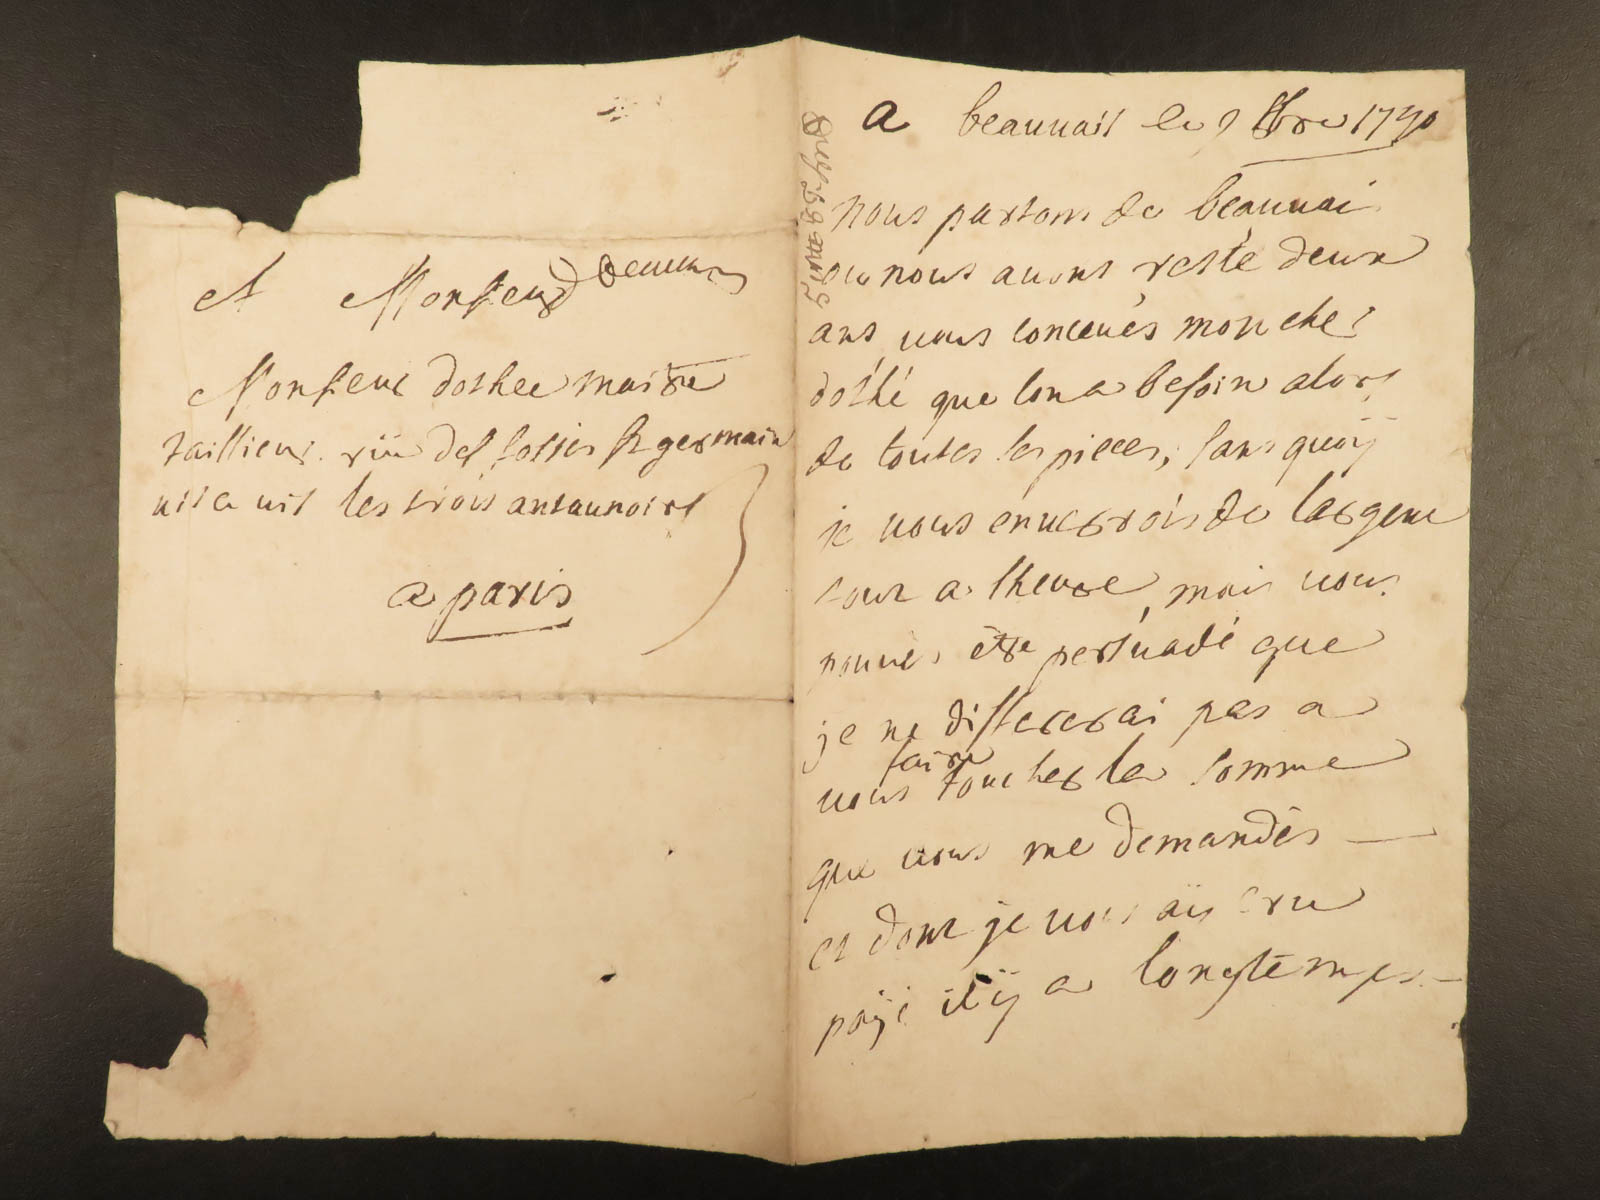 A Monsieur
Monsieur dosthee maitre
taillieur rüe des fossés st germain
vis a vis les trois antaunoirs
a paris
a beauvais le 9 8bre 1750
nous partons de beauvai
ou nous avons resté deux
ans vous concevés mon cher
dosthé que lon a besoin alors
de toutes ses pieces, sans quoÿ
je vous enverrois de largent
tout a lheure, mais vous
pouvés être persuadé que
je ne differerai pas a
vous faire toucher la somme
que vous me demandés —
et dont je vous aÿs cru
paÿé il ÿ a longtemps —